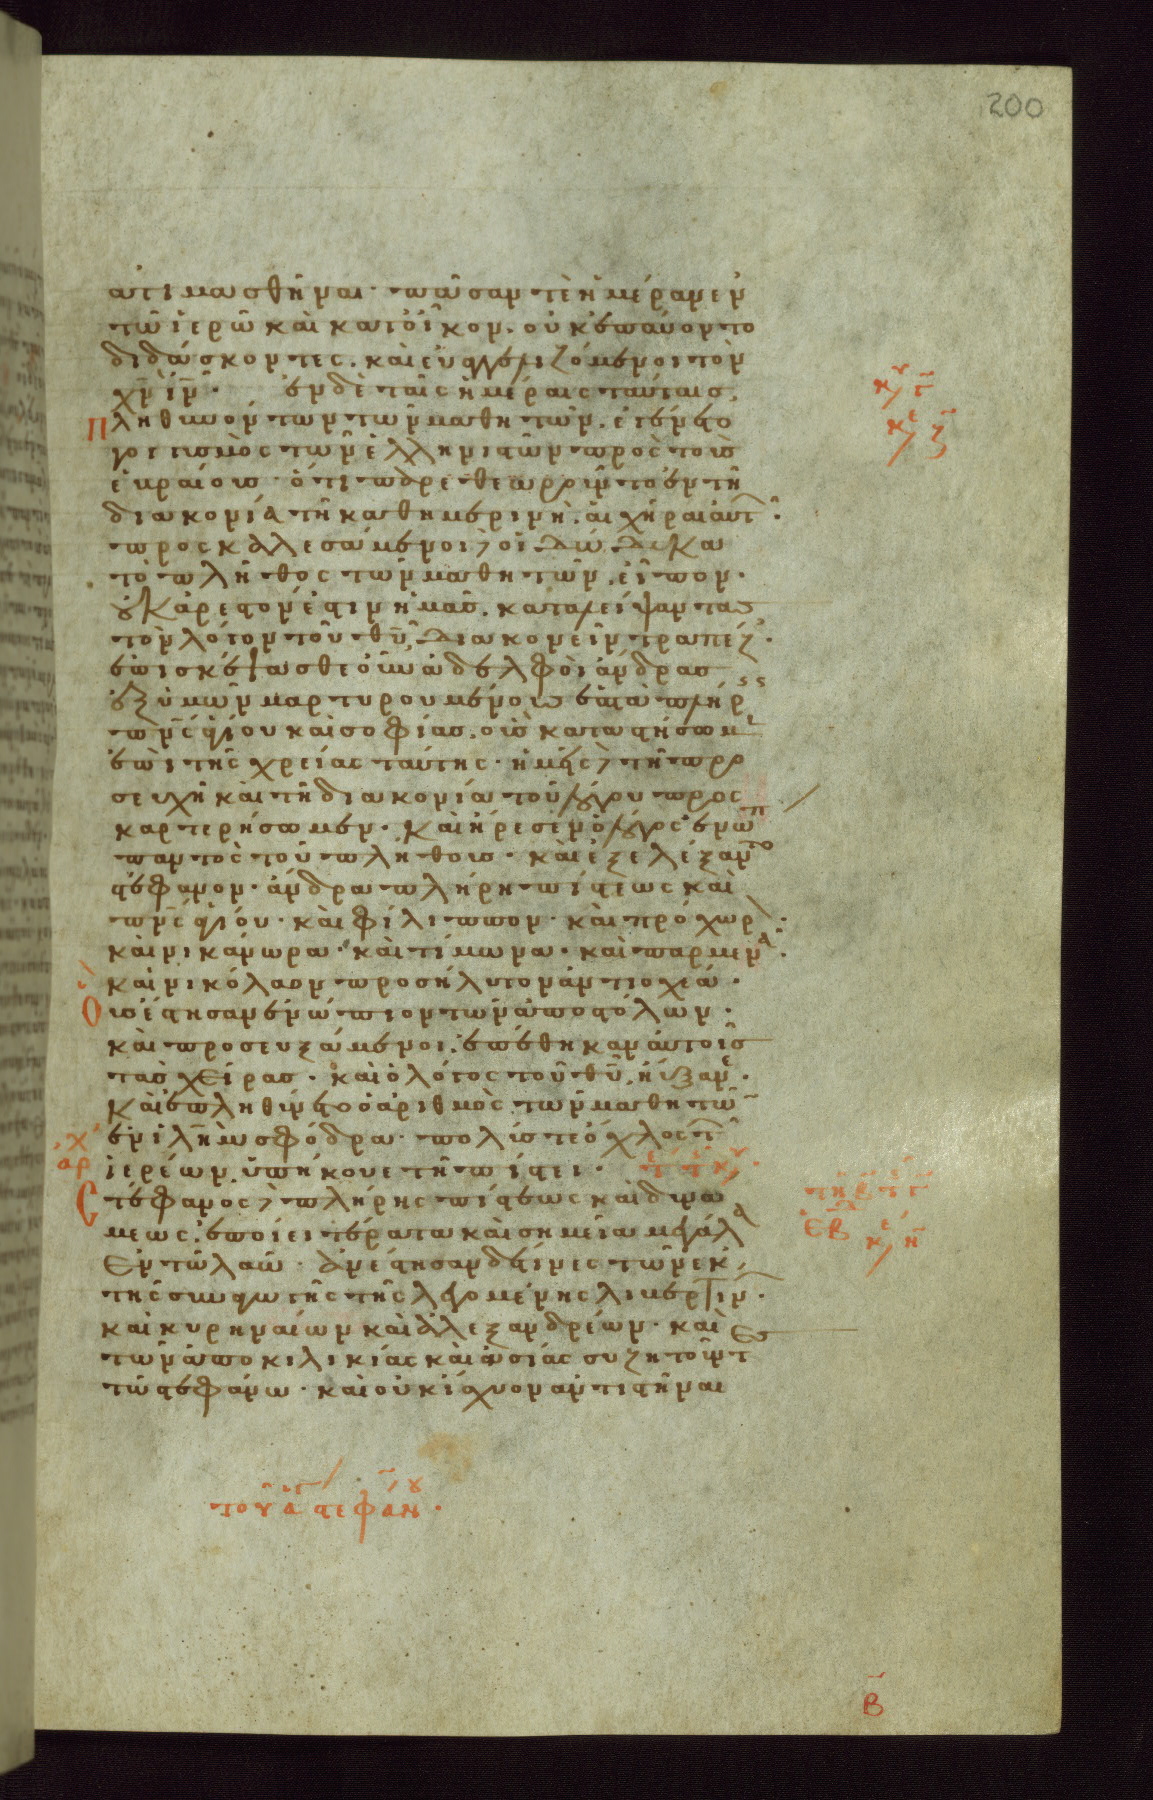 200
ατιμασθῆναι· πᾶσαν τὲ ἡμέραν ἐν
τῶ ἱερῶ καὶ κατ' οἶκον. οὐκ ἐπαύοντο
διδάσκοντες. καὶ εὐαγγελιζόμενοι τὸν
χ̅ν̅ ι̅ν̅· ἐν δὲ ταῖς ἡμέραις ταύταις,
πληθυνόντων τῶν μαθητῶν. ἐγένετο
γογγυσμὸς τῶν ἑλληνιστῶν πρὸς τοὺς
ἑβραίους· ὅτι παρεθεωροῦντο ἐν τῆ
διακονία τῆ καθημερινῆ. αἱ χῆραι αὐτ·
προσκαλεσάμενοι οἱ δώδεκα
τὸ πλῆθος τῶν μαθητῶν, εἶπον·
οὐκ ἀρεστόν ἐστιν ἡμᾶς. καταλείψαντας
τὸν λόγον τοῦ θ̅υ̅ διακονεῖν τραπέζ·
ἐπισκέψασθε οὖν ἀδελφοὶ ἄνδρας
ἐξ ὑμῶν μαρτυρουμένους ἑπτὰ πλήρ
π̅ν̅ς̅ ἁγίου καὶ σοφίας. οὓς καταστήσομ
ἐπὶ τῆς χρείας ταύτης· ἡμεῖς δὲ τῆ προ
σευχῆ καὶ τῆ διακονία τοῦ λόγου προς
καρτερήσωμεν· καὶ ἤρεσεν ὁ λόγος ἐνώπ
παντὸς τοῦ πλήθους· καὶ ἐξελέξαντο
στέφανον· ἄνδρα πλήρη πίστεως καὶ
π̅ν̅ς̅ ἁγίου· καὶ φίλιππον· καὶ πρόχωρ·
καὶ νικάνωρα· καὶ τίμωνα· καὶ παρμεν·
καὶ νικόλαον προσήλυτον ἀντιοχέα·
οὓς ἔστησαν ἐνώπιον τῶν ἀποστόλων·
καὶ προσευξάμενοι, ἐπέθηκαν αὐτοῖς
τὰς χεῖρας· καὶ ὁ λόγος τοῦ θ̅υ̅ ηὔξανε·
καὶ ἐπληθύνετο ὁ ἀριθμὸς τῶν μαθητῶ
ἐν ἰλ̅ημ σφόδρα· πολύς τε ὄχλος τ
ἱερέων, ὑπήκουε τῆ πίστει·
στέφανος δὲ πλήρης πίστεως καὶ δυνά
μεως, ἐποίει τέρατα καὶ σημεῖα μεγάλα
ἐν τῶ λαῶ· ἀνέστησαν δέ τινες τῶν ἐκ
τῆς συναγωγῆς τῆς λεγομένης λιβερτίν·
καὶ κυρηναίων καὶ ἀλεξανδρέων· καὶ
τῶν ἀπὸ κιλικίας καὶ ἀσίας συζητοῦντες
τῶ στεφάνω· καὶ οὐκ ἴσχυον ἀντιστῆναι
τοῦ ἁγ στεφάνου·
β̅